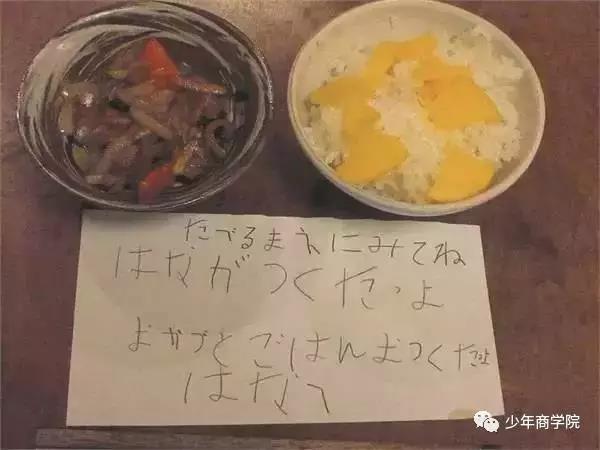 たべるまえにみてね
はながつくたつよ
おかづとごはんおつくたよ
はなへ
少年商学院